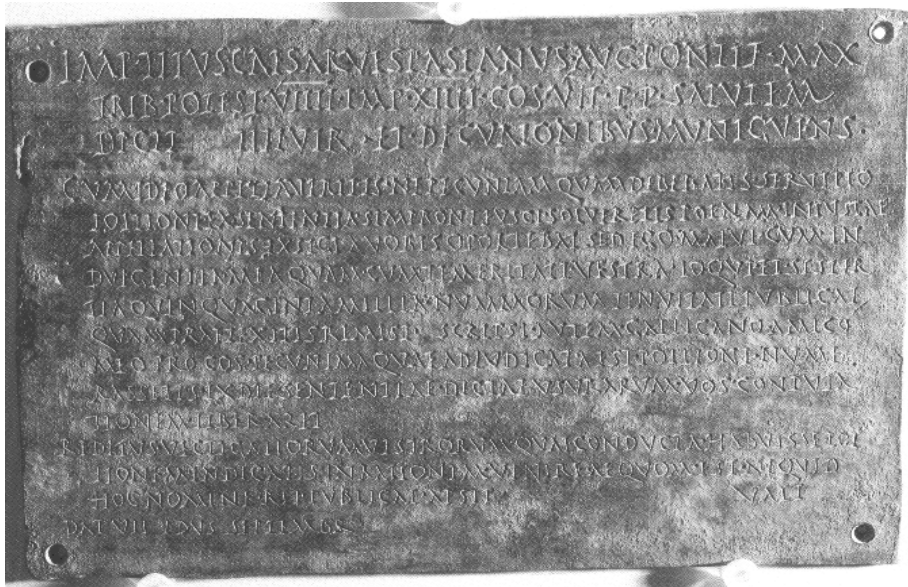 IMP·TITVS CAESAR VESPASIANVS AVG·PONTIF·MAX
TRIB·POTEST·VIIII·IMP·XIIII·COS·VII·P·P·SALVTEM
DICIT IIIIVIR·ET·DECVRIONIBVS·MVNIGVENS·
CVM IDEO APPELLAVERITIS·NE PECVNIAM QVAM DEBEBATIS·SERVILIO
POLLIONI EX SENTENTIA SEMPRONI FVSCI SOLVERETIS POENAM INIVSTAE
APPELLATIONIS EXSIGI A VOBIS OPORTEBAT SED EGO MALVI CVM IN
DVLGENTIA MEA QVAM CVM TEMERITATE VESTRA LOQVI ET SESTER
TIA QVINQVAGINTA MILLIA NVMMORVM TENVITATI PVBLICAE
QVAM REMISI·SCRIPSI AVTEM GALLICANO AMICO
MEO PROCOS·PECVNIAM QVAE ADIVDICATA EST·POLLIONI·NVME
EX DIE SENTENTIAE DICTAE VSVRARVM VOS CONPVTA
TIONEM
REDITVS VECTIGALIORVM VESTRORVM QVAE CONDVCTA HABVISSE POL
LIONEM INDICATIS IN RATIONEM VENIRE AEQVOM EST·NE QVID
HOC NOMINE·REI PVBLICAE ABSIT· VALE
DAT VII IDVS SEPTEMBR